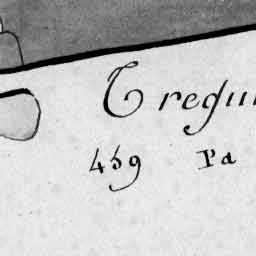 Tregu
459 Pa